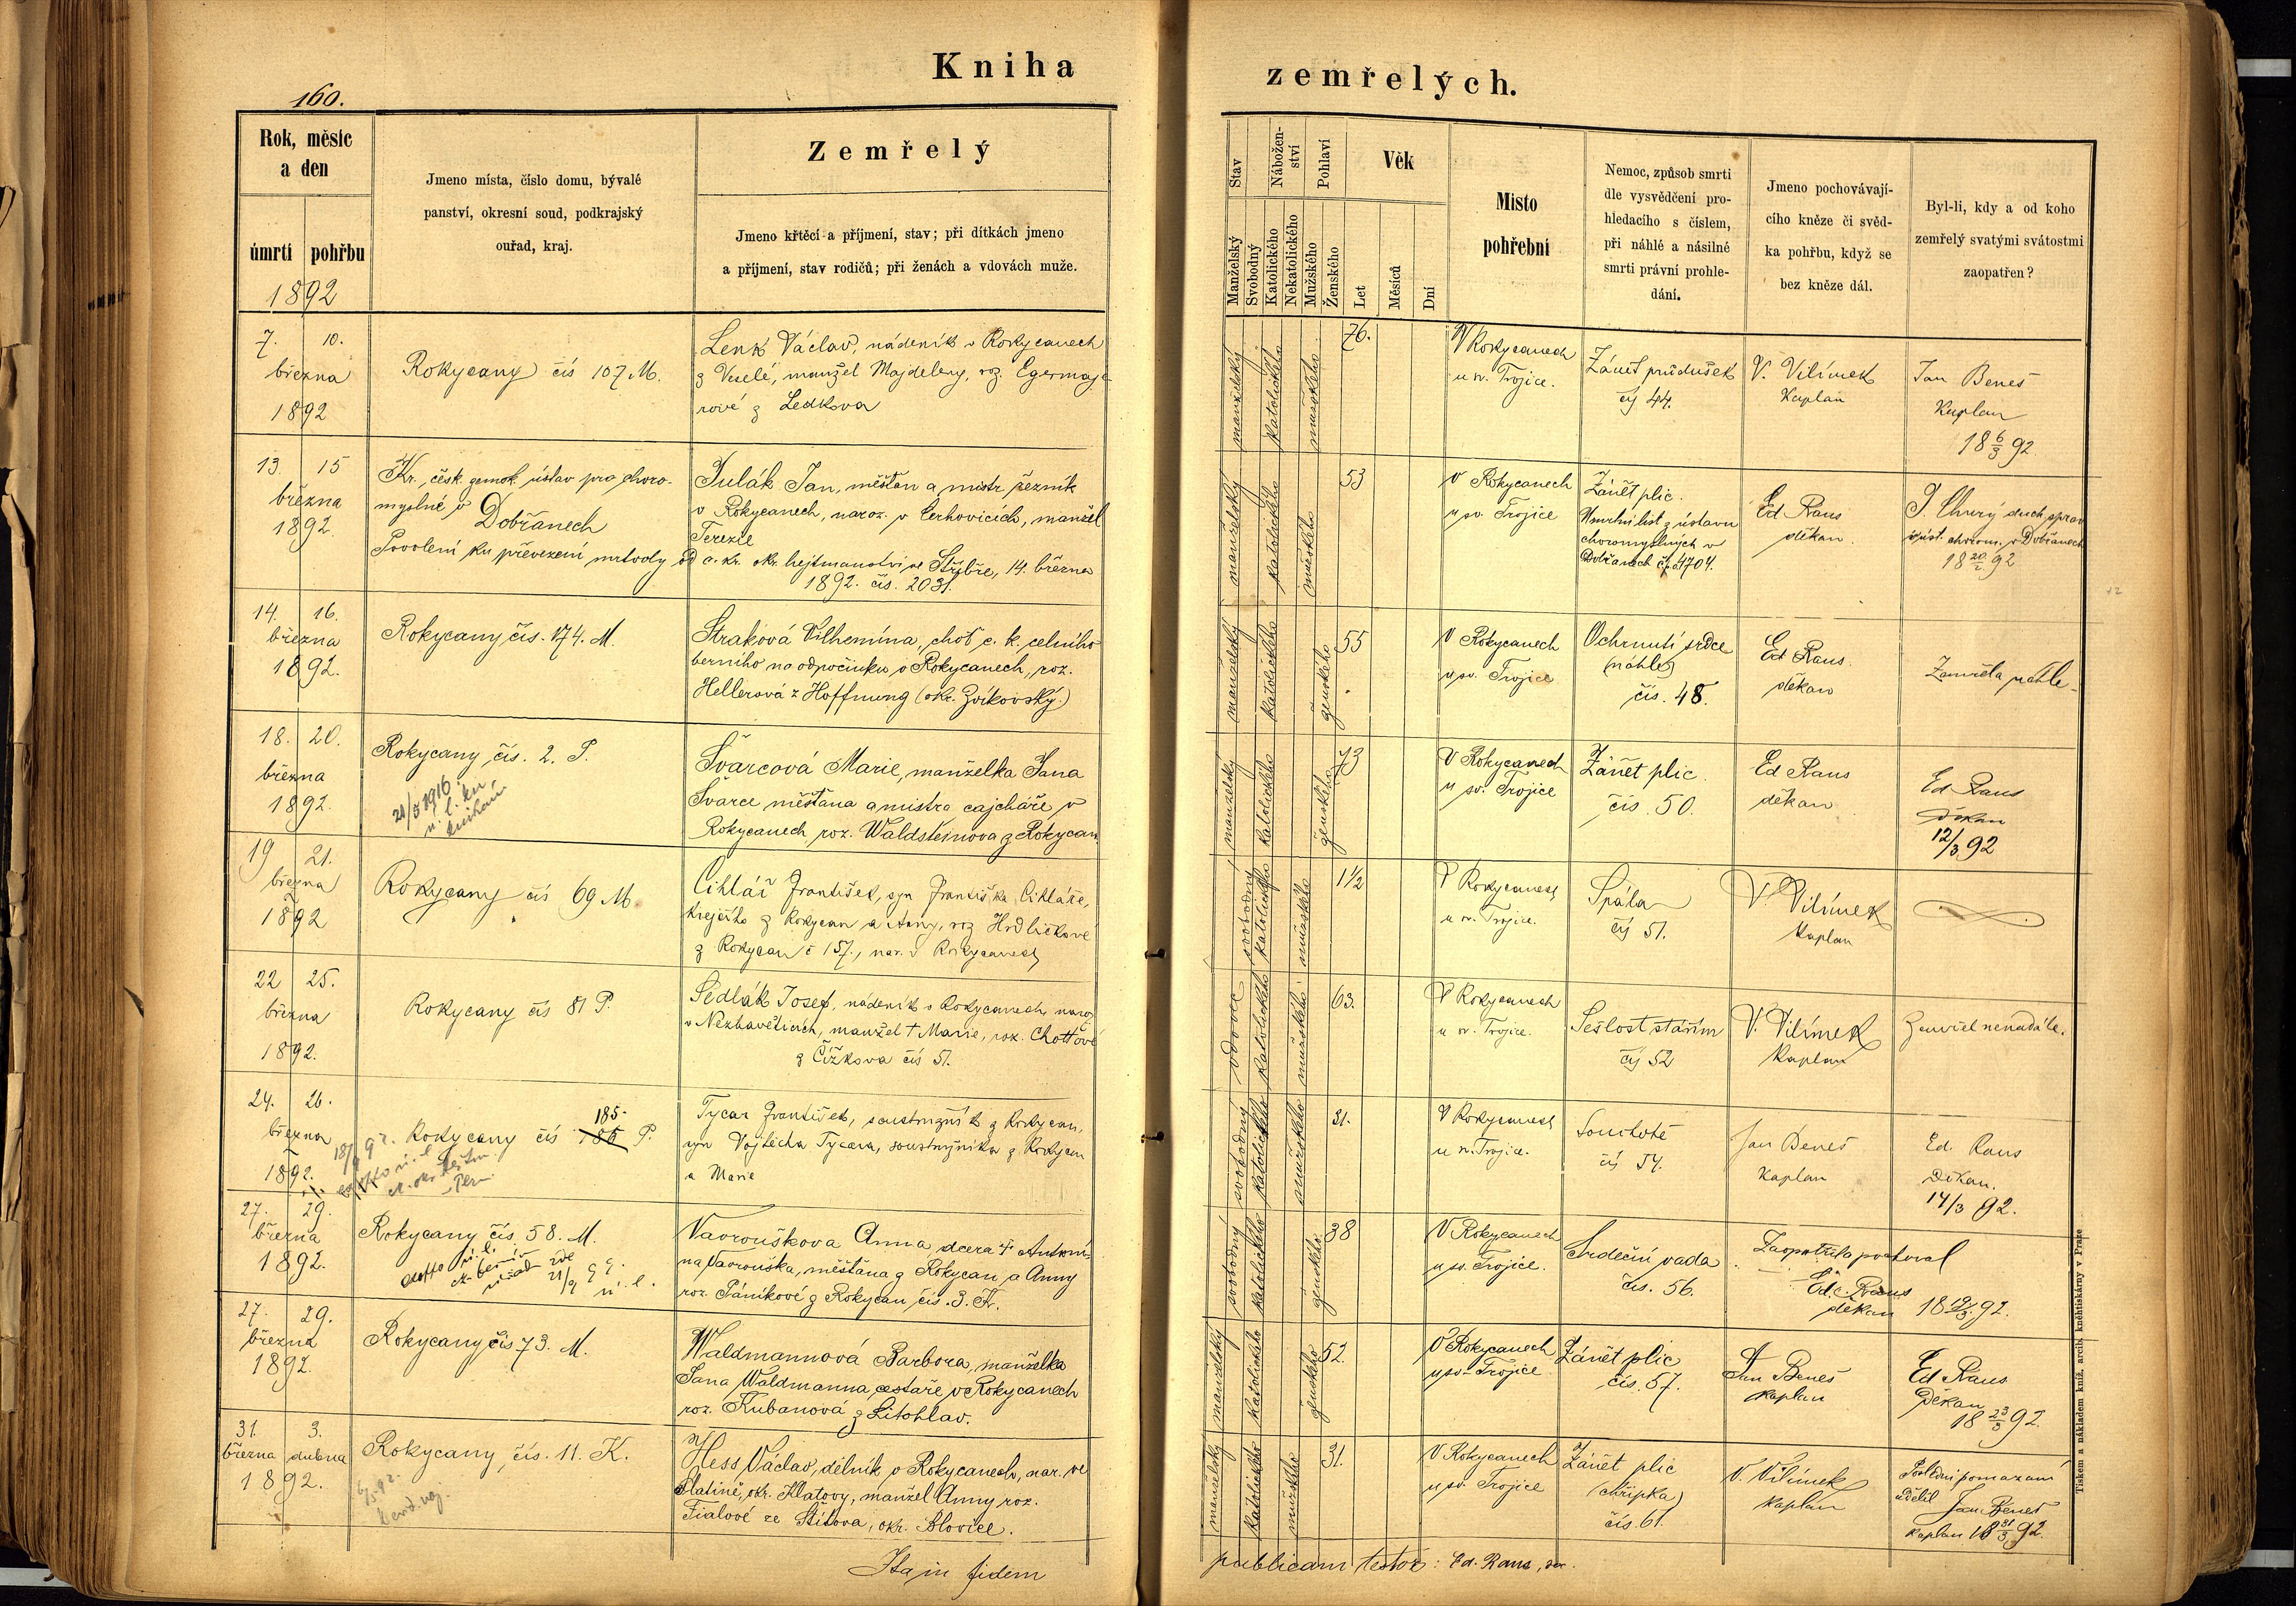 Kniha
zemřelých.
160.
Rok, měsíc
a den
úmrtí
pohřbu
1892
Jmeno místa, číslo domu, bývalé
panství, okresní soud, podkrajský
ouřad, kraj.
Zemřelý
Jmeno křtěcí a příjmení, stav; při dítkách jmeno
a příjmení, stav rodičů; při ženách a vdovách muže.
Stav
Manželský
Svobodný
Nábožen-
ství
Katolického
Nekatolického
Pohlaví
Mužského
Ženského
Věk
Let
Měsíců
Dní
Místo
pohřební
Nemoc, způsob smrti
dle vysvědčení pro-
hledacího s číslem,
při náhlé a násilné
smrti právní prohle-
dání.
Jmeno pochovávají-
cího kněze či svěd-
ka pohřbu, když se
bez kněze dál.
Byl-li, kdy a od koho
zemřelý svatými svátostmi
zaopatřen?
7. 10.
března
1892
Rokycany čís 107 M.
Lenk Václav, nádeník v Rokycanech
z Veselé, manžel Majdeleny, roz. Egermaje-
rové z Ledkova
manželský
katolického
mužského
76.
V Rokycanech
u sv. Trojice.
Zánět průdušek
čís 44.
V. Vilímek
Kaplan
Jan Beneš
Kaplan
18 6/3 92
13. 15
března
1892.
Kr. česk. zemsk. ústav pro choro-
myslné v
Dobřanech
Povolení ku převezení mrtvoly od c. kr. okr. hejtmanství ve Stříbře, 14. března
1892. čís. 2031.
Julák Jan, měšťan a mistr řezník
v Rokycanech, naroz. v Cerhovicích, manžel
Terezie
manželský
katolického
mužského
53
V Rokycanech
u sv. Trojice
Zánět plic.
Úmrtní list z ústavu
choromyslných v
Dobřanech č. 1704.
Ed Raus
děkan
duch. sprav
v úst. chorom. v Dobřanech
18 20/2 92
14. 16.
března
1892.
Rokycany čís. 174. M.
Straková Vilhemína, choť c. k. celního
berního na odpočinku v Rokycanech, roz.
Hellerová z Hoffnung (okr. Zvíkovský.)
manželský
katolického
ženského
55
V Rokycanech
u sv. Trojice
Ochrnutí srdce
(náhle)
čís. 48.
Ed Raus.
děkan
Zemřela náhle
18. 20.
března
1892.
Rokycany čís. 2. P.
21/5 1916
Švarcová Marie, manželka Jana
Švarce měšťana a mistra cajcháře v
Rokycanech, roz. Waldsteinova z Rokycan.
manželský
katolického
ženského
73
V Rokycanech
u sv. Trojice
Zánět plic.
čís. 50.
Ed Raus
děkan
Ed Raus
děkan
12/3 92
19 21.
března
1892
Rokycany čís 69 M.
Cihlář František, syn Františka Cihláře,
krejčího z Rokycan a Anny, roz Hrdličkové
z Rokycan č 157., nar. v Rokycanech
svobodný
katolického
mužského
1 1/2
V Rokycanech
u sv. Trojice.
Spála
čís 51.
V. Vilímek
Kaplan
22 25.
března
1892.
Rokycany čís 81 P.
Sedlák Josef, nádeník v Rokycanech, naroz
v Nezbavěticích, manžel † Marie, roz. Chottové
z Čížkova čís 51.
vdovec
katolického
mužského
63.
V Rokycanech
u sv. Trojice.
Sešlost stářím
čís 52
V. Vilímek
Kaplan
Zemřel nenadále.
24. 26.
března
1892.
185.
Rokycany čís 186 P.
Tycar František, soustružník z Rokycan,
syn Vojtěcha Tycara, soustružníka z Rokycan
a Marie
svobodný
katolického
mužského
21.
V Rokycanech
u sv. Trojice.
Souchotě
čís 54.
Jan Beneš
Kaplan
Ed. Raus
Děkan.
14/3 92.
27. 29.
března
1892.
Rokycany čís. 58. M.
Vavroušková Anna, dcera † Antoní-
na Vavrouška, měšťana z Rokycan, a Anny
roz. Pánikové z Rokycan čís. 3. K.
svobodný
katolického
ženského
38
V Rokycanech
u sv. Trojice.
Srdeční vada
čís. 56.
Zaopatřil a pochoval
Ed. Raus
děkan 18 19/3 92.
27. 29.
března
1892.
Rokycany čís 73. M.
Waldmannová Barbora, manželka
Jana Waldmanna, cestáře v Rokycanech
roz. Kubanová z Litohlav.
manželský
katolického
ženského
52.
V Rokycanech
u sv. Trojice
Zánět plic
čís. 57.
Jan Beneš
kaplan
Ed Raus
Děkan
18 23/3 92.
31. 3.
března dubna
1892.
Rokycany, čís. 11. K.
Hess Václav, dělník v Rokycanech, nar. ve
Slatině, okr. Klatovy, manžel Anny roz.
Fialové ze Štítova, okr. Blovice.
manželský
katolického
mužského
31.
V Rokycanech
u sv. Trojice
Zánět plic
(chřipka)
čís. 61.
V. Vilímek
kaplan
Poslední pomazání
udělil
Jan Beneš
Kaplan 18 31/3 92.
Ita in fidem
publicam testor: Ed. Raus,
Tiskem a nákladem kníž. arcib. knihtiskárny v Praze